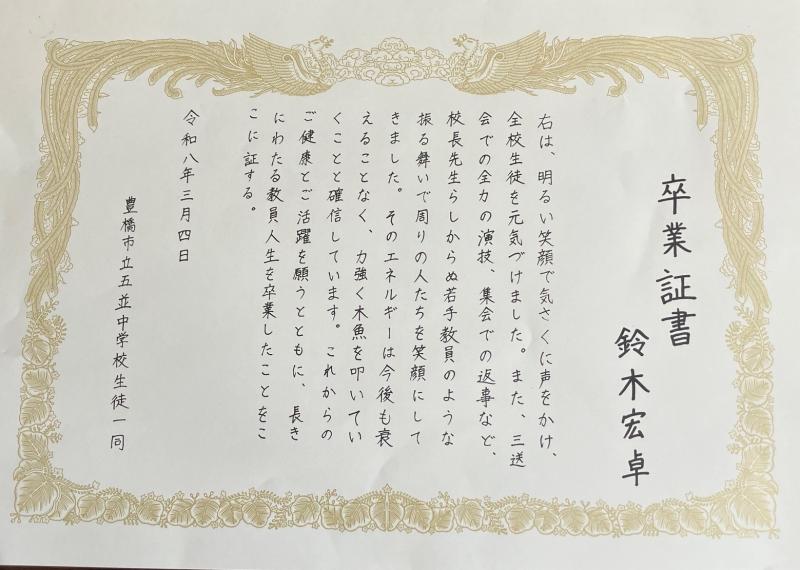 卒業証書
鈴木宏卓
右は、明るい笑顔で気さくに声をかけ、
全校生徒を元気づけました。また、三送
会での全力の演技、集会での返事など、
校長先生らしからぬ若手教員のような
振る舞いで周りの人たちを笑顔にして
きました。そのエネルギーは今後も衰
えることなく、力強く木魚を叩いてい
くことと確信しています。これからの
ご健康とご活躍を願うとともに、長き
にわたる教員人生を卒業したことをこ
こに証する。
令和八年三月四日
豊橋市立五並中学校生徒一同